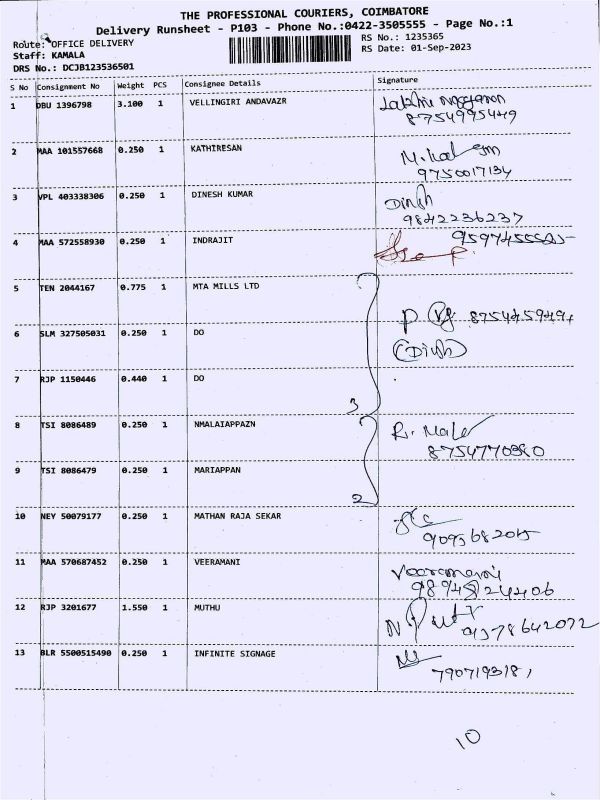 THE PROFESSIONAL COURIERS, COIMBATORE
Delivery Runsheet - P103 - Phone No.:0422-3505555 - Page No.:1
Route: OFFICE DELIVERY RS No.: 1235365
Staff: KAMALA RS Date: 01-Sep-2023
DRS No.: DCJB123536501
S No Consignment No Weight PCS Consignee Details Signature
1 DBU 1396798 3.100 1 VELLINGIRI ANDAVAZR
8754995449
2 MAA 101557668 0.250 1 KATHIRESAN
9750017134
3 VPL 403338306 0.250 1 DINESH KUMAR Dinesh
9842236237
4 MAA 572558930 0.250 1 INDRAJIT
5 TEN 2044167 0.775 1 MTA MILLS LTD
6 SLM 327505031 0.250 1 DO
7 RJP 1150446 0.440 1 DO
3
8 TSI 8086489 0.250 1 NMALAIAPPAZN
8754770380
9 TSI 8086479 0.250 1 MARIAPPAN
2
10 NEY 50079177 0.250 1 MATHAN RAJA SEKAR
11 MAA 570687452 0.250 1 VEERAMANI Veeramani
12 RJP 3201677 1.550 1 MUTHU
13 BLR 5500515490 0.250 1 INFINITE SIGNAGE
10